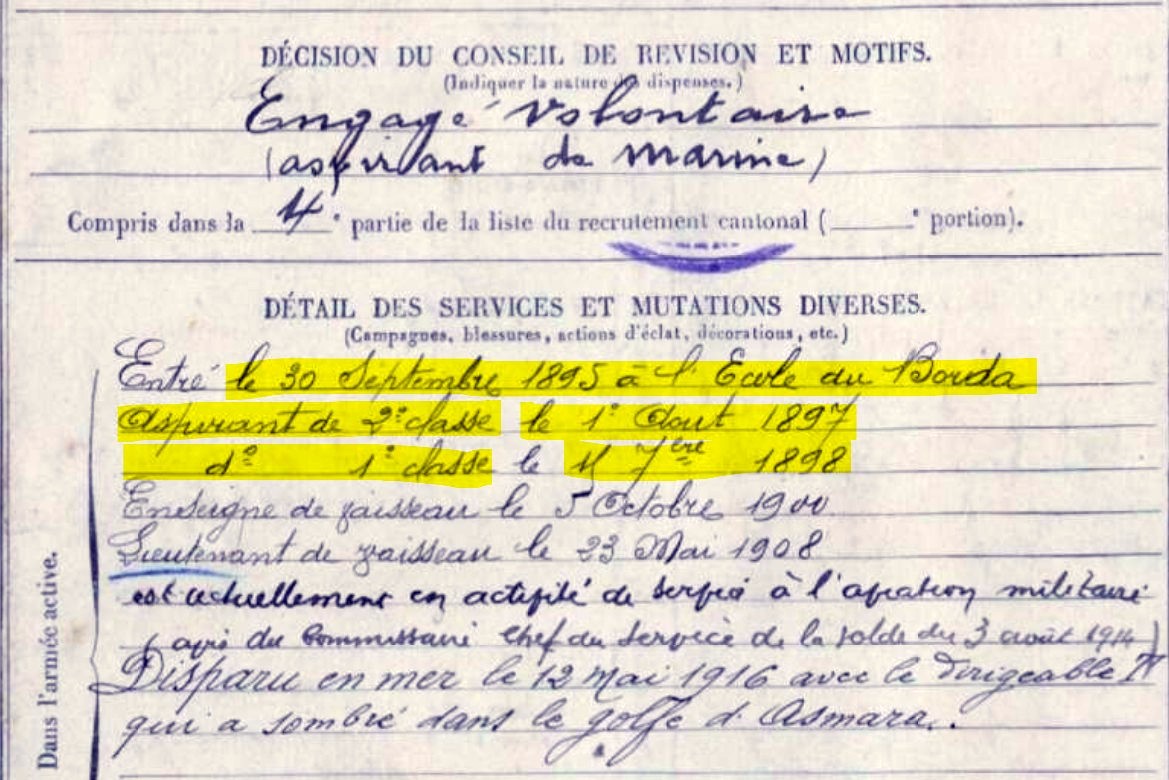 DÉCISION DU CONSEIL DE REVISION ET MOTIFS.
(Indiquer la nature des dispenses.)
Engagé volontaire
(aspirant de marine)
Compris dans la 4e partie de la liste du recrutement cantonal ( e portion).
DÉTAIL DES SERVICES ET MUTATIONS DIVERSES.
(Campagnes, blessures, actions d'éclat, décorations, etc.)
Entré le 30 Septembre 1895 à l'Ecole du Borda
Aspirant de 2e classe le 1e Aout 1897
do 1e classe le 7bre 1898
Enseigne de vaisseau le 5 Octobre 1900
Lieutenant de vaisseau le 23 Mai 1908
est actuellement en activité de service à l'aviation militaire
(avis du Commissaire Chef du Service de la solde du 3 août 1914)
Disparu en mer le 12 Mai 1916 avec le Dirigeable
qui a sombré dans le golfe d'Asmara.
Dans l'armée active.